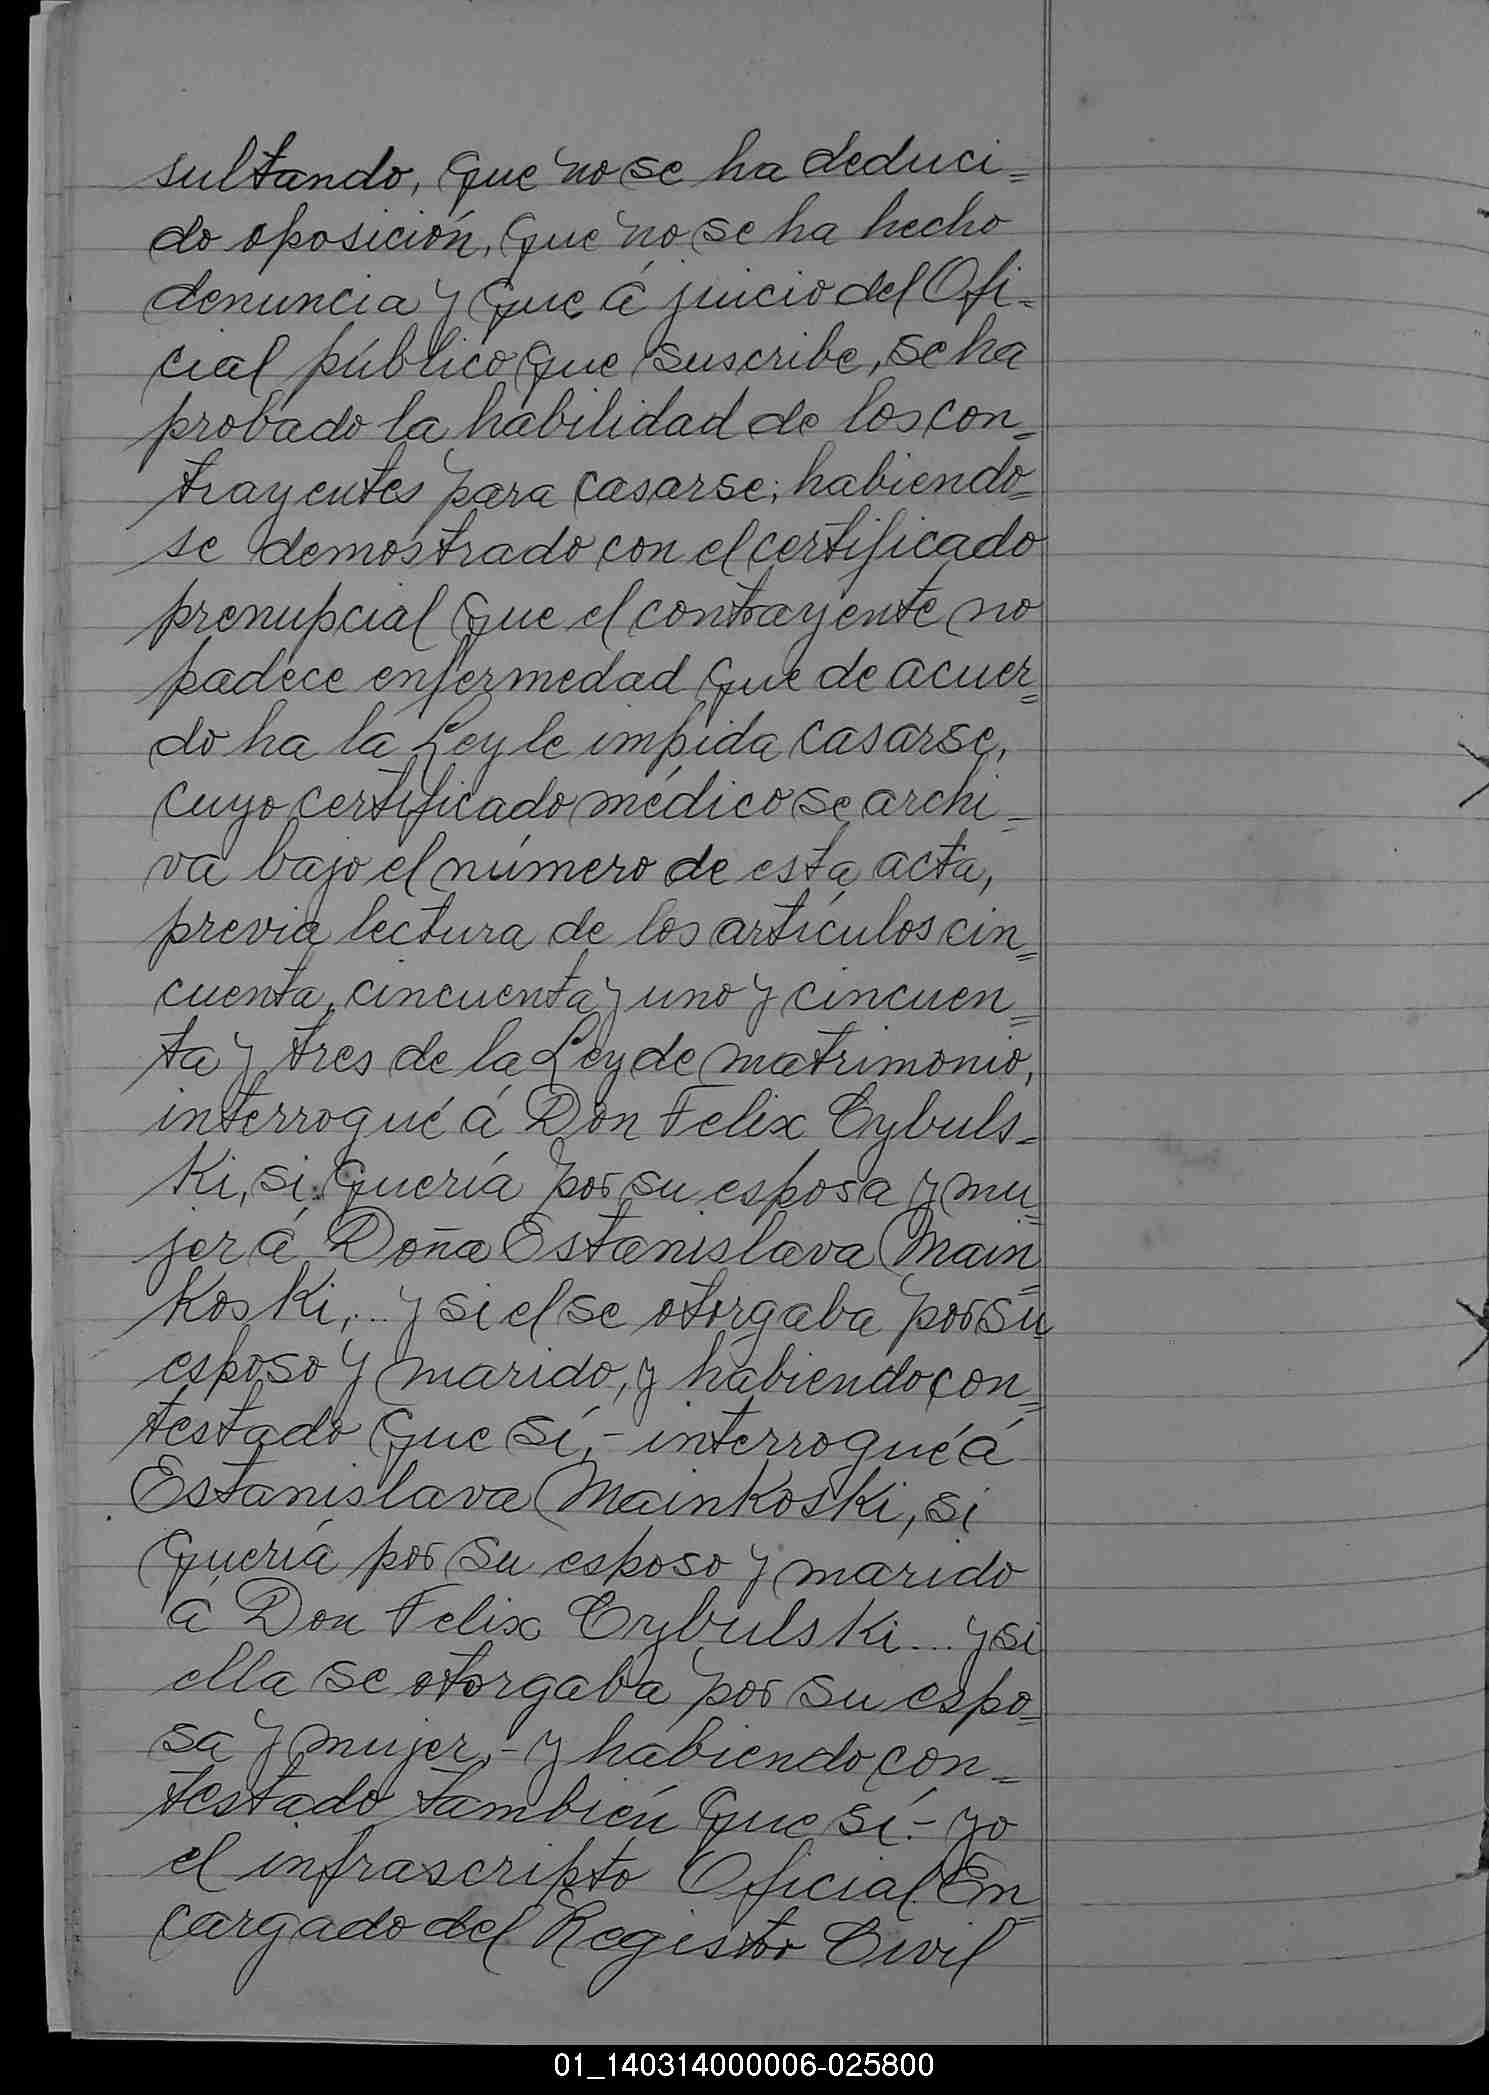 sultando, que no se ha deduci=
do oposición, que no se ha hecho
denuncia y que á juicio del Ofi=
cial público que suscribe, se ha
probado la habilidad de los con=
trayentes para casarse; habiendo=
se demostrado con el certificado
prenupcial que el contrayente no
padece enfermedad que de acuer=
do ha la Ley le impida casarse,
cuyo certificado médico se archi-
va bajo el número de esta acta,
previa lectura de los artículos cin=
cuenta, cincuenta y uno y cincuen=
ta y tres de la Ley de matrimonio,
interrogué á Don Felix Cybuls=
Ki, si quería por su esposa y mu=
jer á Doña Estanislava Main=
KosKi,... y si el se otorgaba por su
esposo y marido, y habiendo con=
testado que sí,- interrogué á
Estanislava MainKosKi, si
quería por su esposo y marido
á Don Felix CybulsKi... y si
ella se otorgaba por su espo=
sa y mujer,- y habiendo con=
testado también que sí.- yo
el infrascripto Oficial En=
cargado del Registro Civil
01_140314000006-025800